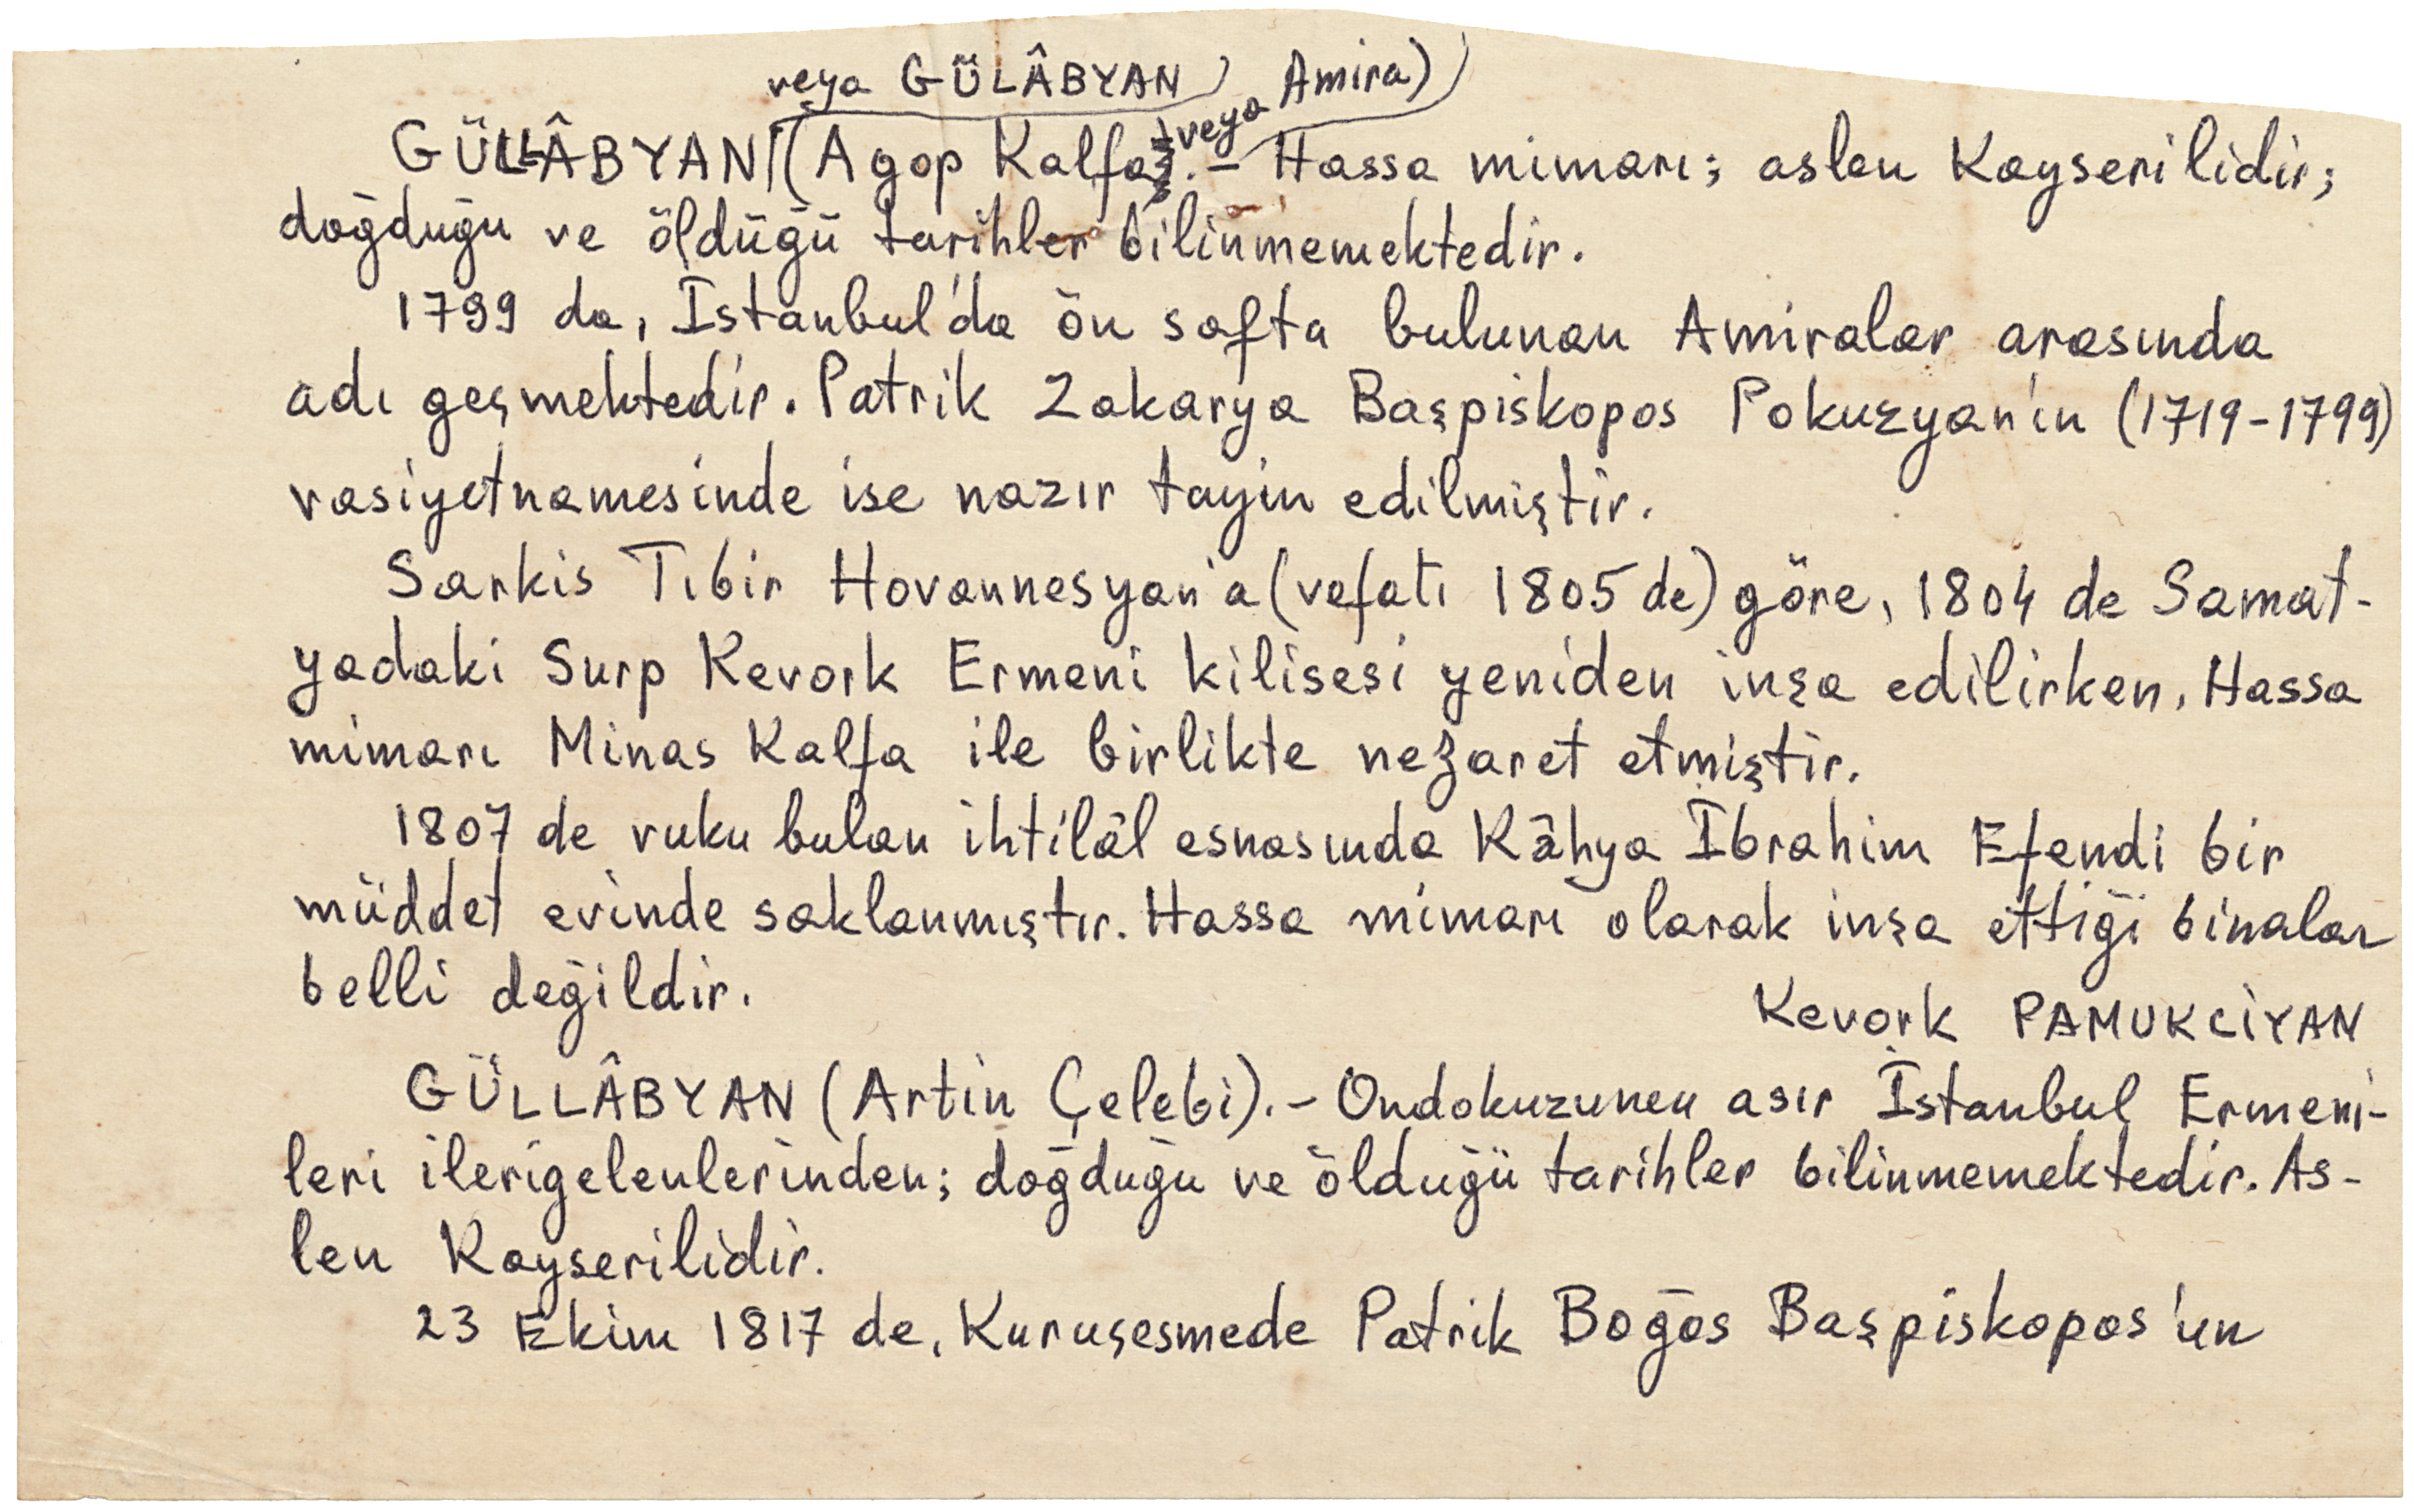 veya GÜLÂBYAN veya Amira)
GÜLLÂBYAN (Agop Kalfa .- Hassa mimarı; aslen Kayserilidir;
doğduğu ve öldüğü tarihler bilinmemektedir.
1799 da, İstanbul'da ön safta bulunan Amiralar arasında
adı geçmektedir. Patrik Zakarya Başpiskopos Pokuzyan'ın (1719-1799)
vasiyetnamesinde ise nazır tayin edilmiştir.
Sarkis Tıbir Hovannesyan'a (vefatı 1805 de) göre, 1804 de Samat-
yadaki Surp Kevork Ermeni kilisesi yeniden inşa edilirken, Hassa
mimarı Minas Kalfa ile birlikte nezaret etmiştir.
1807 de vuku bulan ihtilâl esnasında Kâhya İbrahim Efendi bir
müddet evinde saklanmıştır. Hassa mimarı olarak inşa ettiği binalar
belli değildir.
Kevork PAMUKCİYAN
GÜLLÂBYAN (Artin Çelebi).- Ondokuzuncu asır İstanbul Ermeni-
leri ilerigelenlerinden; doğduğu ve öldüğü tarihler bilinmemektedir. As-
len Kayserilidir.
23 Ekim 1817 de, Kuruçesmede Patrik Boğos Başpiskopos'un